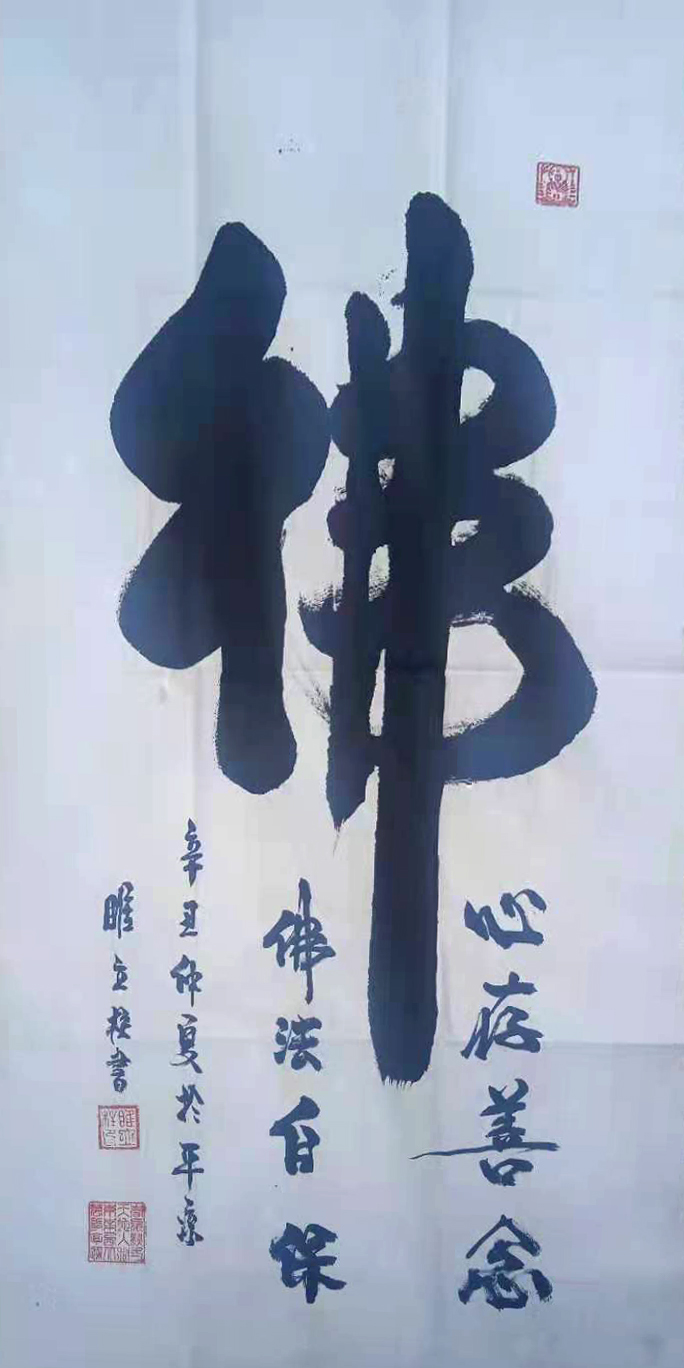 佛
心存善念
佛法自保
辛丑仲夏於平桑
睢立柱書